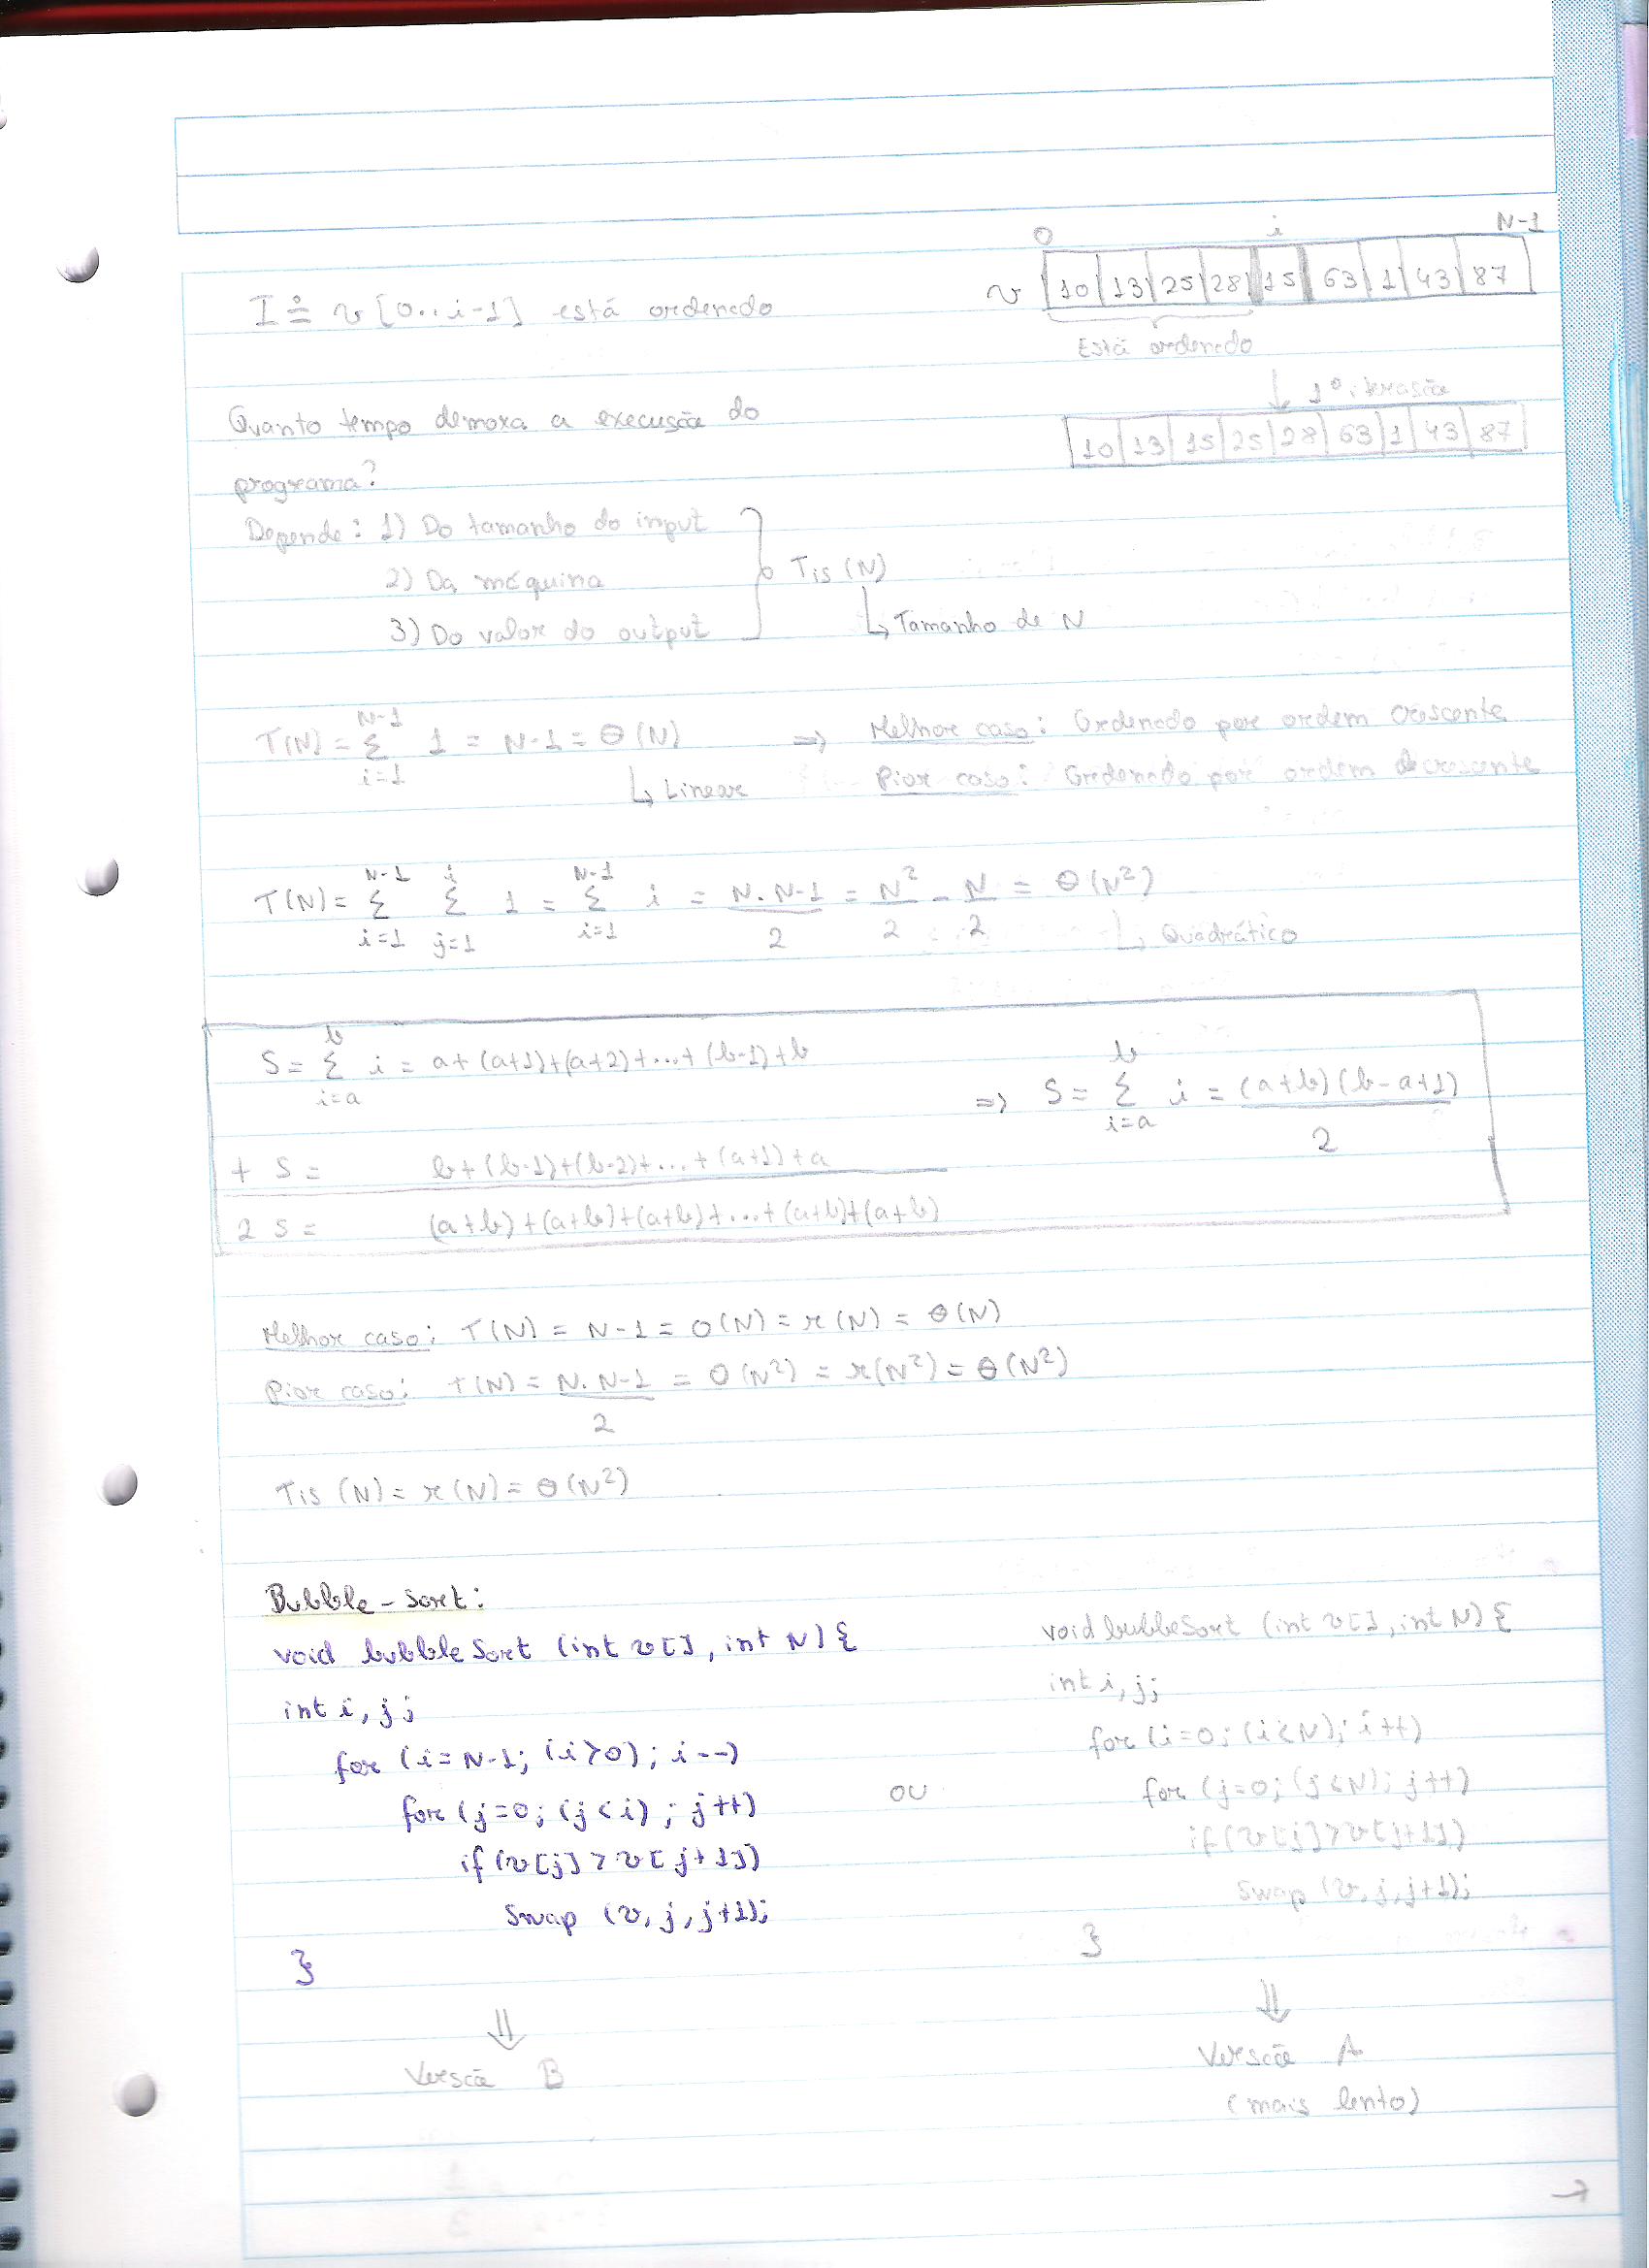 0 i N-1
v 10 13 25 28 15 63 1 43 87
I ≗ v[0..i-1] está ordenado
Está ordenado
1º iterasão
Quanto tempo demora a execusão do
10 13 15 25 28 63 1 43 87
programa?
Depende: 1) Do tamanho do input
2) Da máquina
Tis (N)
3) Do valor do output
↳ Tamanho de N
T(N) = N-1 Σ i=1 1 = N-1 = Θ(N) => Melhor caso: Ordenado por ordem crescente
↳ Linear Pior caso: Ordenado por ordem decrescente
T(N) = N-1 Σ i=1 i Σ j=1 1 = N-1 Σ i=1 i = N.N-1/2 = N²/2 - N/2 = Θ(N²)
↳ Quadrático
S = b Σ i=a i = a+(a+1)+(a+2)+...+(b-1)+b
=> S = b Σ i=a i = (a+b)(b-a+1)/2
+ S = b+(b-1)+(b-2)+...+(a+1)+a
2 S = (a+b)+(a+b)+(a+b)+...+(a+b)+(a+b)
Melhor caso: T(N) = N-1 = O(N) = Ω(N) = Θ(N)
Pior caso: T(N) = N.N-1/2 = O(N²) = Ω(N²) = Θ(N²)
Tis (N) = Ω(N) = O(N²)
Bubble-sort:
void bubbleSort (int v[], int N) {
int i, j;
for (i=N-1; (i>0); i--)
for (j=0; (j<i); j++)
if (v[j] > v[j+1])
Swap (v, j, j+1);
}
⇓
Versão B
ou
void bubbleSort (int v[], int N) {
int i, j;
for (i=0; (i<N); i++)
for (j=0; (j<N); j++)
if (v[j] > v[j+1])
Swap (v, j, j+1);
}
⇓
Versão A
(mais lento)
→